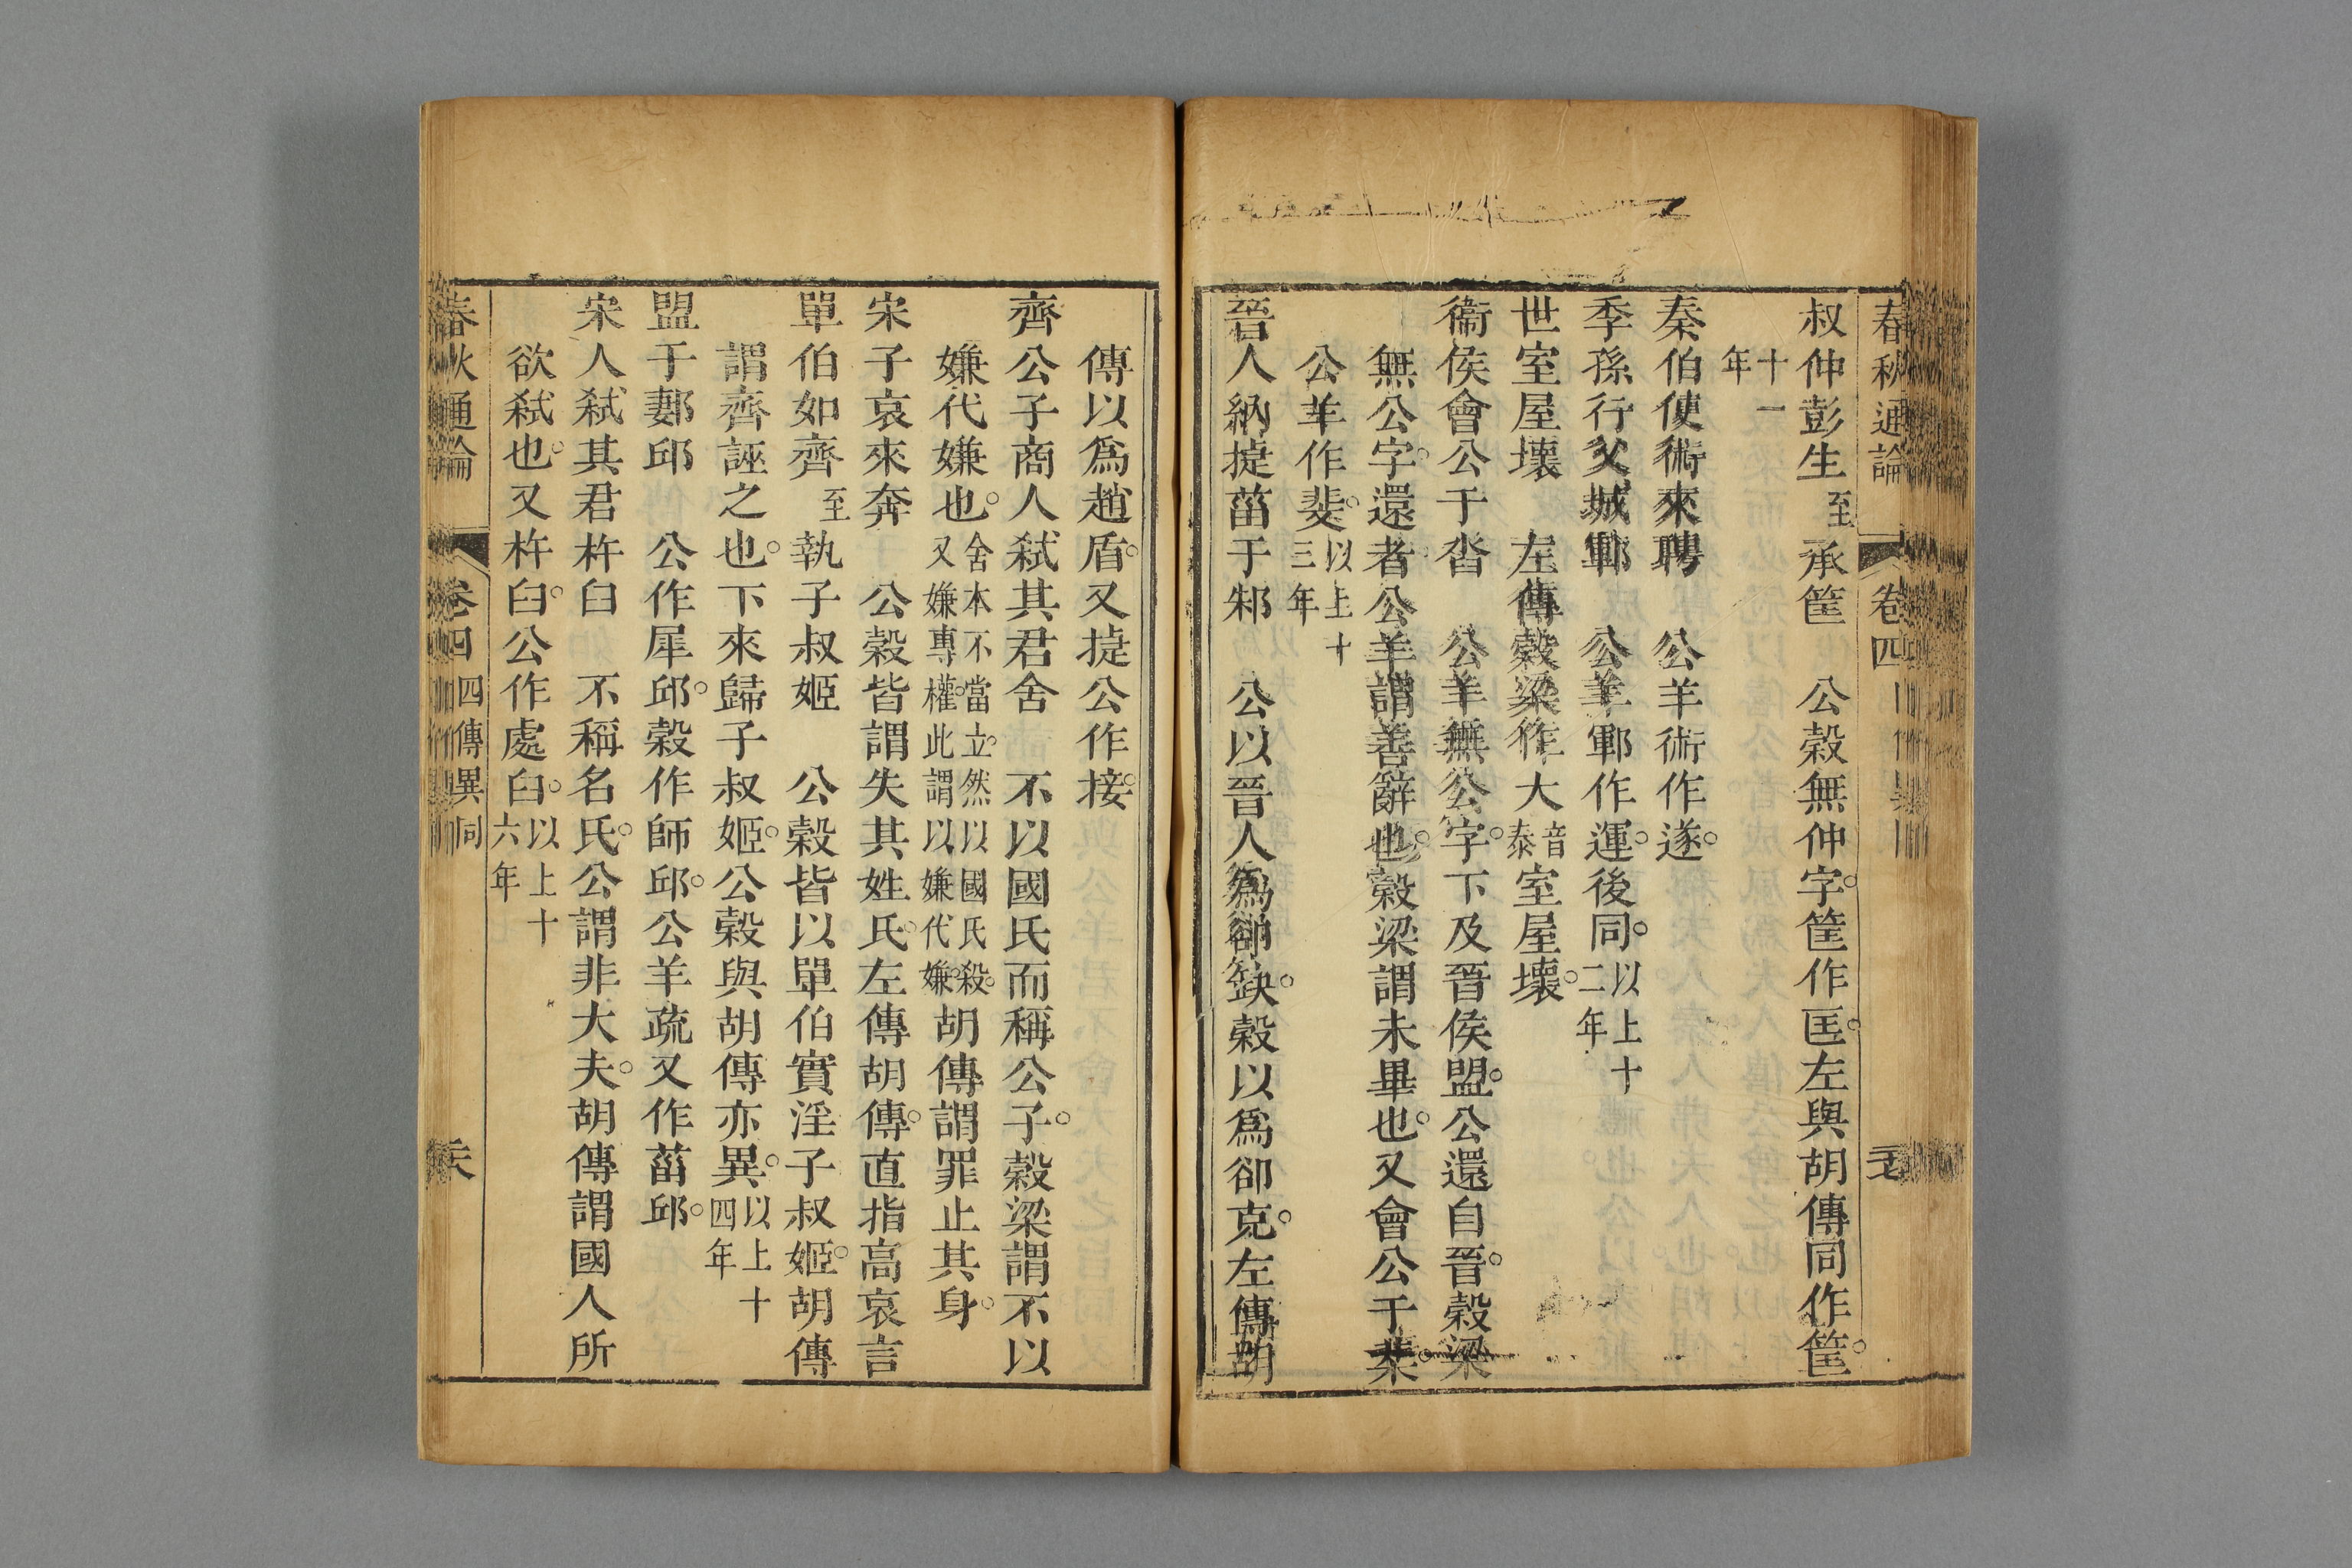 春秋通論 卷四 
叔仲彭生至承筐 公榖無仲字筐作匡左與胡傳同作筐
十一年
秦伯使術來聘 公羊術作遂
季孫行父城鄆 公羊鄆作運後同以上十二年
世室屋壞 左傳榖梁作大音泰室屋壞
衞侯會公于沓 公羊無公字下及晉侯盟公還自晉榖梁
無公字還者公羊謂善辭也榖梁謂未畢也又會公于棐
公羊作斐以上十三年
晉人納捷菑于邾 公以晉人爲郤缺榖以爲郤克左傳胡
傳以爲趙盾又捷公作接
齊公子商人弑其君舍 不以國氏而稱公子榖梁謂不以
嫌代嫌也舍本不當立然以國氏殺又嫌專權此謂以嫌代嫌胡傳謂罪止其身
宋子哀來奔 公榖皆謂失其姓氏左傳胡傳直指高哀言
單伯如齊至執子叔姬 公榖皆以單伯實淫子叔姬胡傳
謂齊誣之也下來歸子叔姬公榖與胡傳亦異以上十四年
盟于郪邱 公作犀邱榖作師邱公羊疏又作菑邱
宋人弑其君杵臼 不稱名氏公謂非大夫胡傳謂國人所
欲弑也又杵臼公作處臼以上十六年
春秋通論 卷四 四傳異同